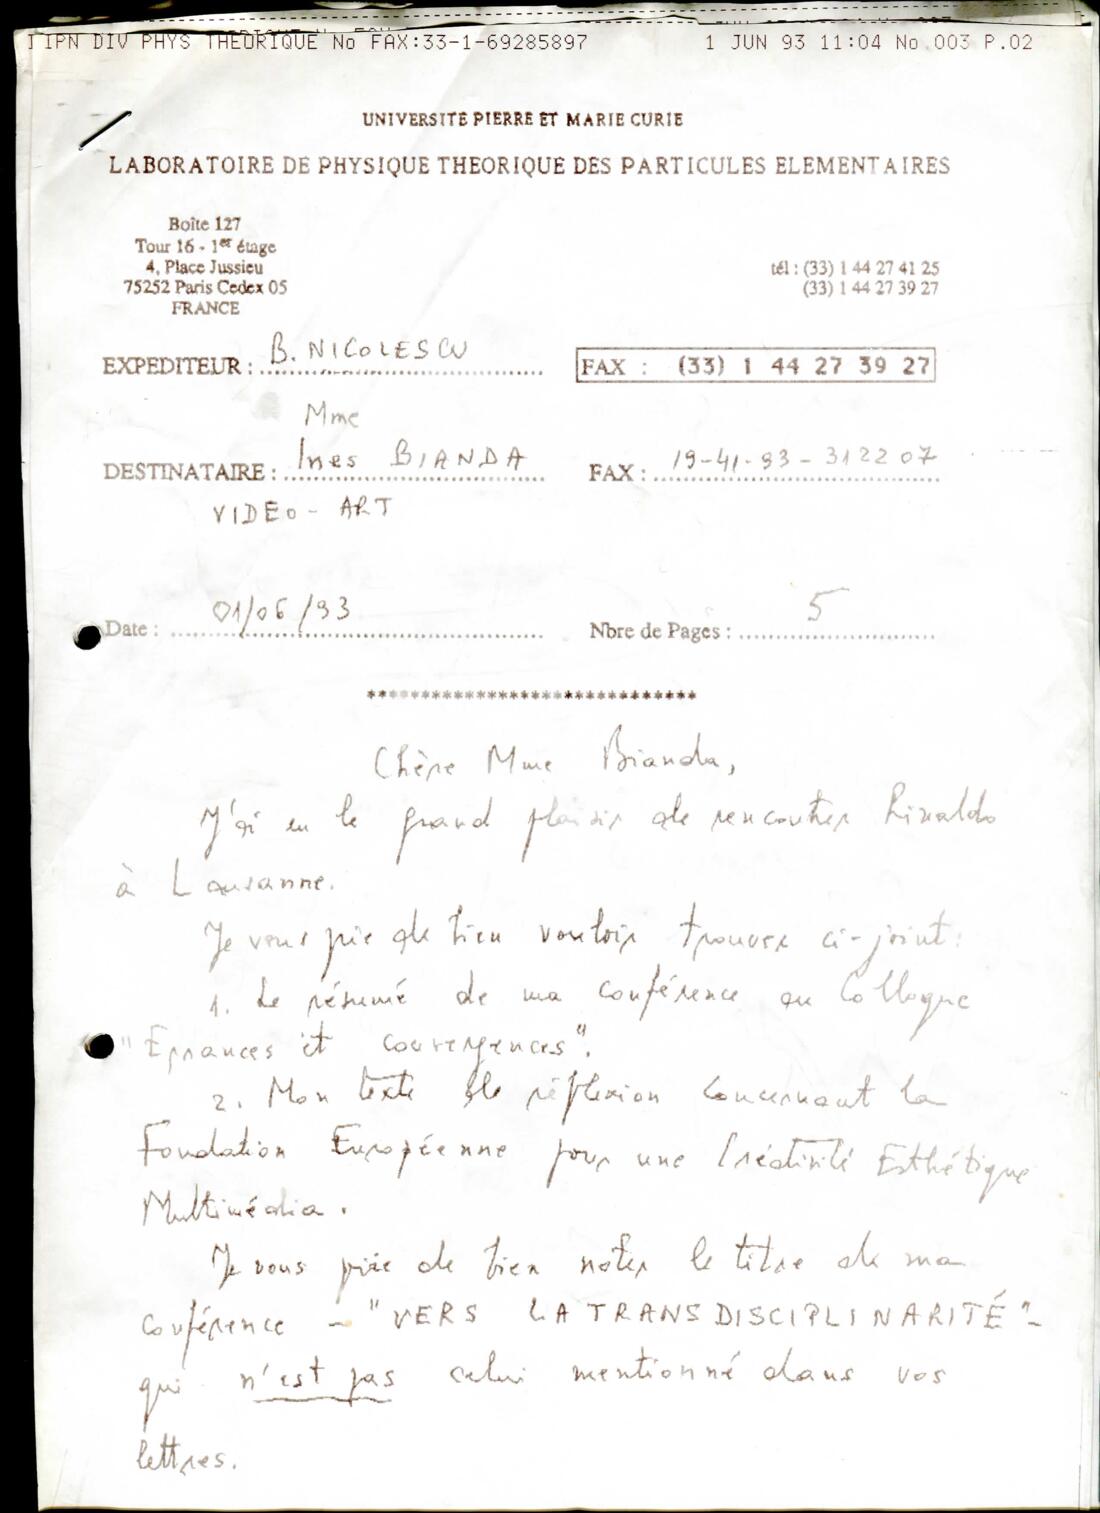 IPN DIV PHYS THEORIQUE No FAX:33-1-69285897 1 JUN 93 11:04 No.003 P.02
UNIVERSITÉ PIERRE ET MARIE CURIE
LABORATOIRE DE PHYSIQUE THEORIQUE DES PARTICULES ELEMENTAIRES
Boîte 127
Tour 16 - 1er étage
4, Place Jussieu
75252 Paris Cedex 05
FRANCE
tél : (33) 1 44 27 41 25
(33) 1 44 27 39 27
EXPEDITEUR : B. NICOLESCU
FAX : (33) 1 44 27 39 27
Mme
DESTINATAIRE : Ines BIANDA
FAX : 19-41-93-312207
VIDEO-ART
Date : 01/06/93
Nbre de Pages : 5
******************************
Chère Mme Bianda,
J'ai eu le grand plaisir de rencontrer Rinaldo
à Lausanne.
Je vous prie de bien vouloir trouver ci-joint :
1. Le résumé de ma conférence au Colloque
"Errances et convergences".
2. Mon texte de réflexion concernant la
Fondation Européenne pour une Créativité Esthétique
Multimédia.
Je vous prie de bien noter le titre de ma
conférence - "VERS LA TRANSDISCIPLINARITÉ" -
qui n'est pas celui mentionné dans vos
lettres.